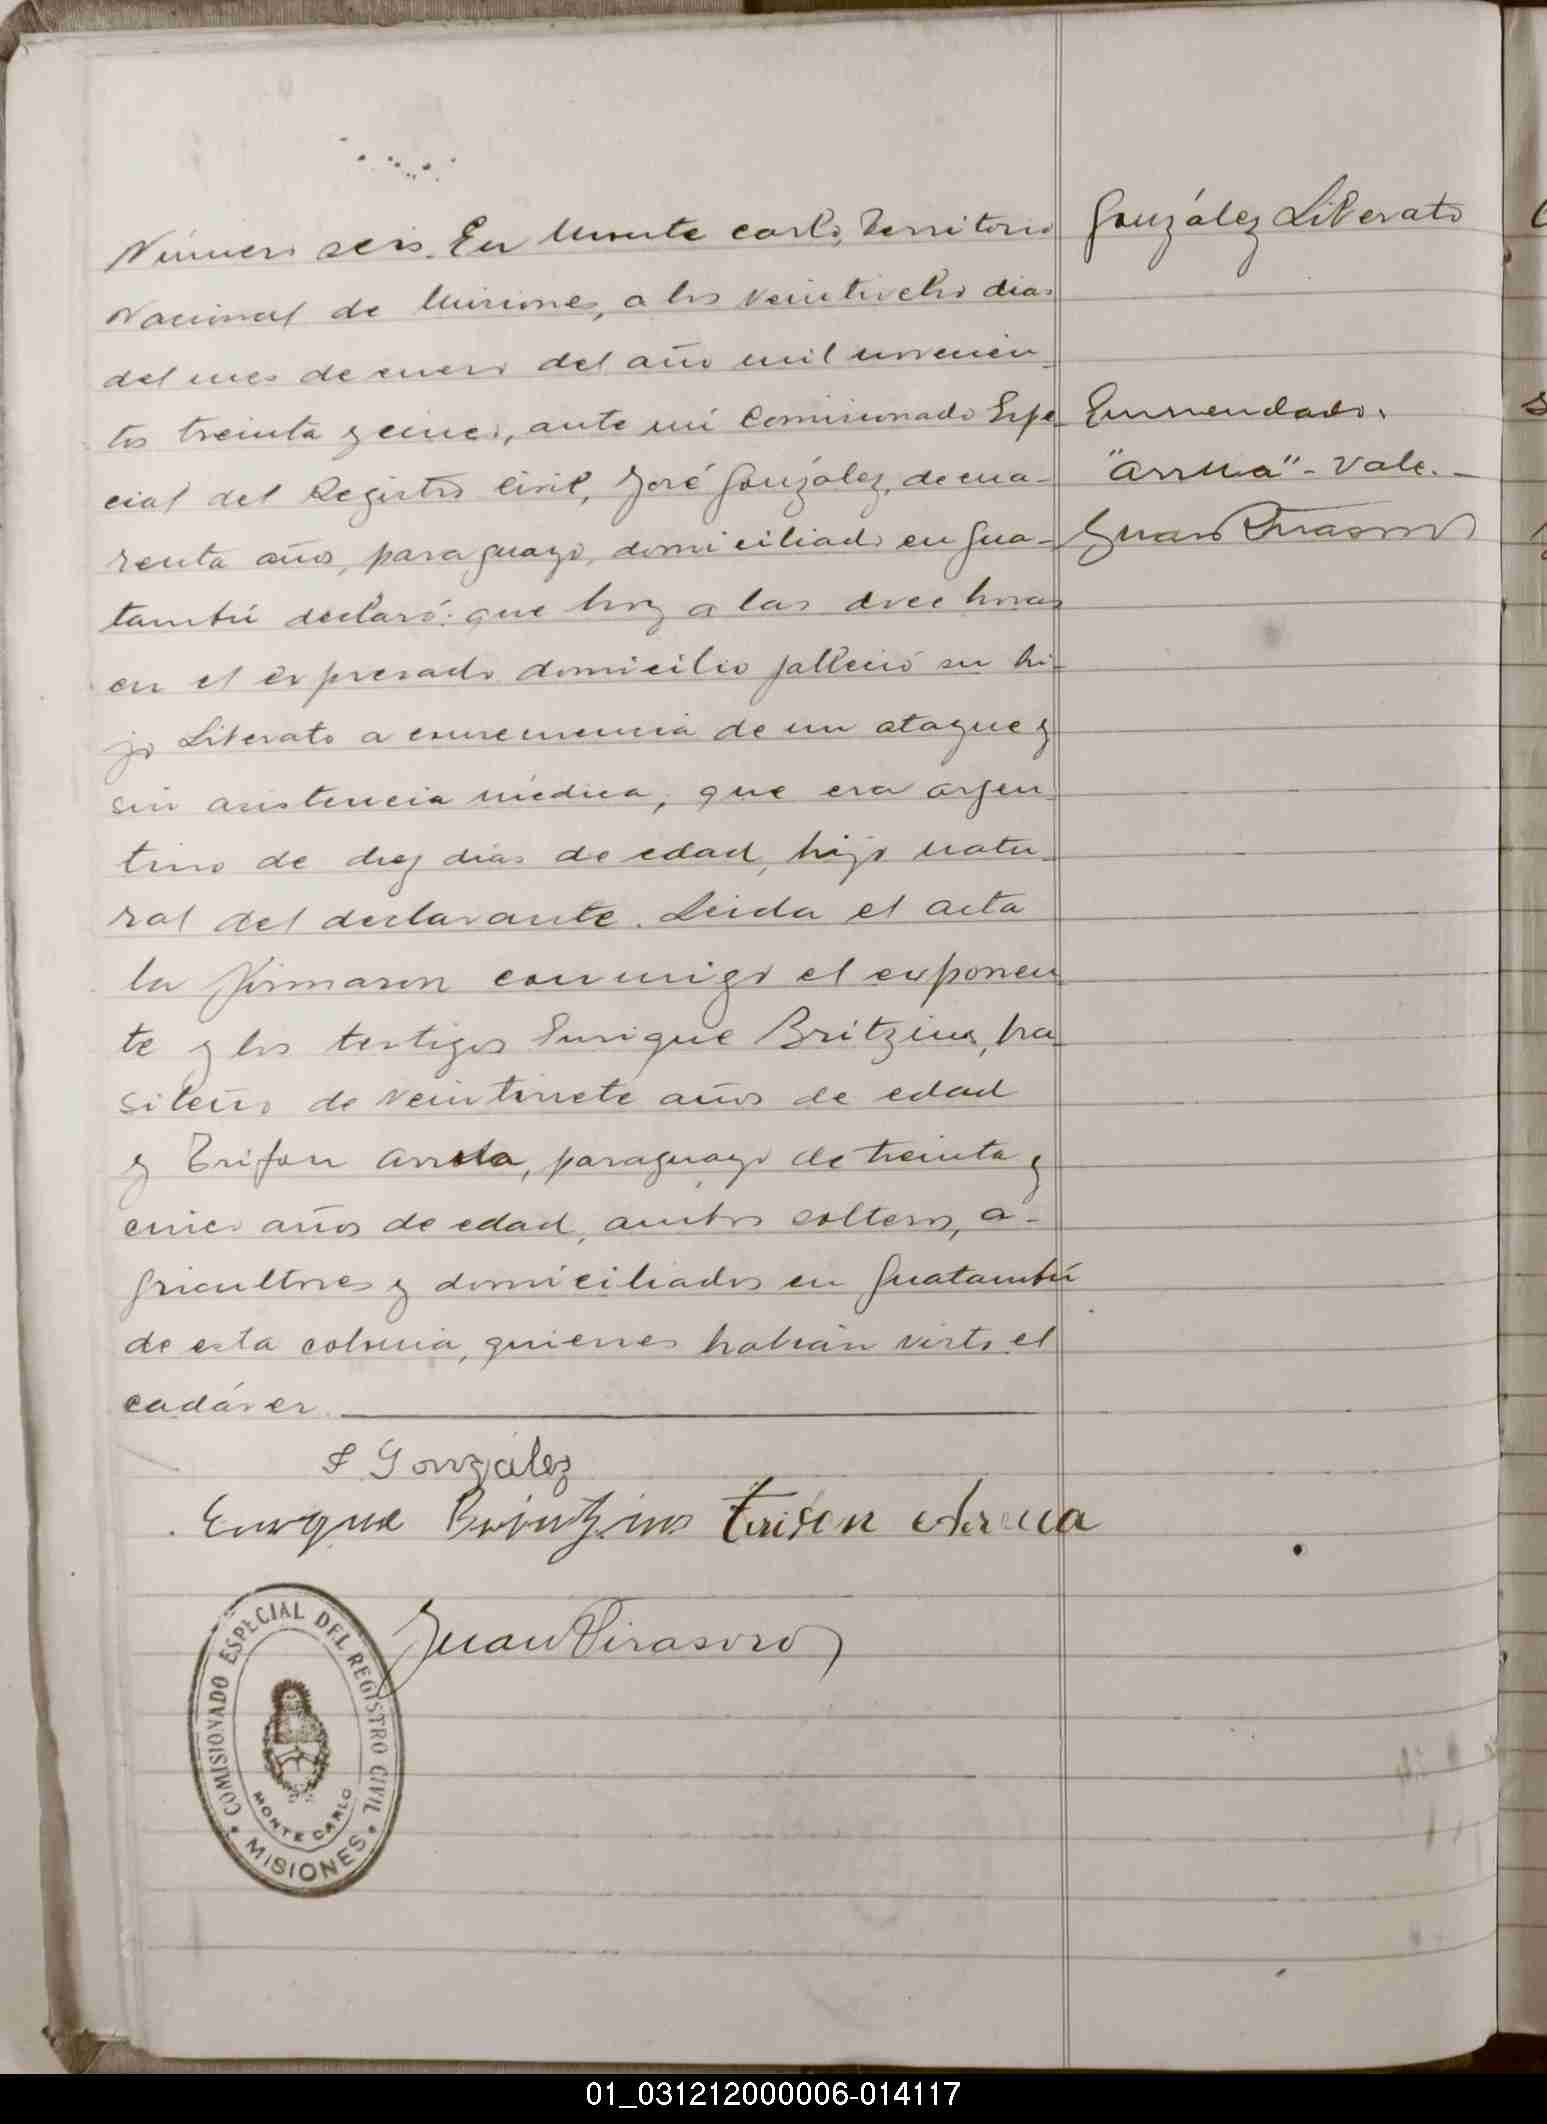 Número seis. En Monte Carlo, Territorio
Nacional de Misiones, a los veintiocho dias
del mes de enero del año mil novecien-
tos treinta y cinco, ante mi Comisionado Espe-
cial del Registro Civil, José González, de cua-
renta años, paraguayo, domiciliado en Gua-
tambú declaró: que hoy a las doce horas
en el expresado domicilio falleció su hi-
jo Liberato a consecuencia de un ataque y
sin asistencia médica, que era argen-
tino de diez dias de edad, hijo natu-
ral del declarante. Leida el acta
la firmaron conmigo el exponen-
te y los testigos Enrique Britzius, bra-
sileño de veintisiete años de edad
y Trifon Arrua, paraguayo de treinta y
cinco años de edad, ambos solteros, a-
gricultores y domiciliados en Guatambú
de esta colonia, quienes habian visto el
cadáver.
González Liberato
Enmendado.
"Arrua" - Vale. -
Juan Pirasoro
J González
Enrique Trifon Arrua
Juan Pirasoro
COMISIONADO ESPECIAL DEL REGISTRO CIVIL
MONTE CARLO
• MISIONES •
01_031212000006-014117